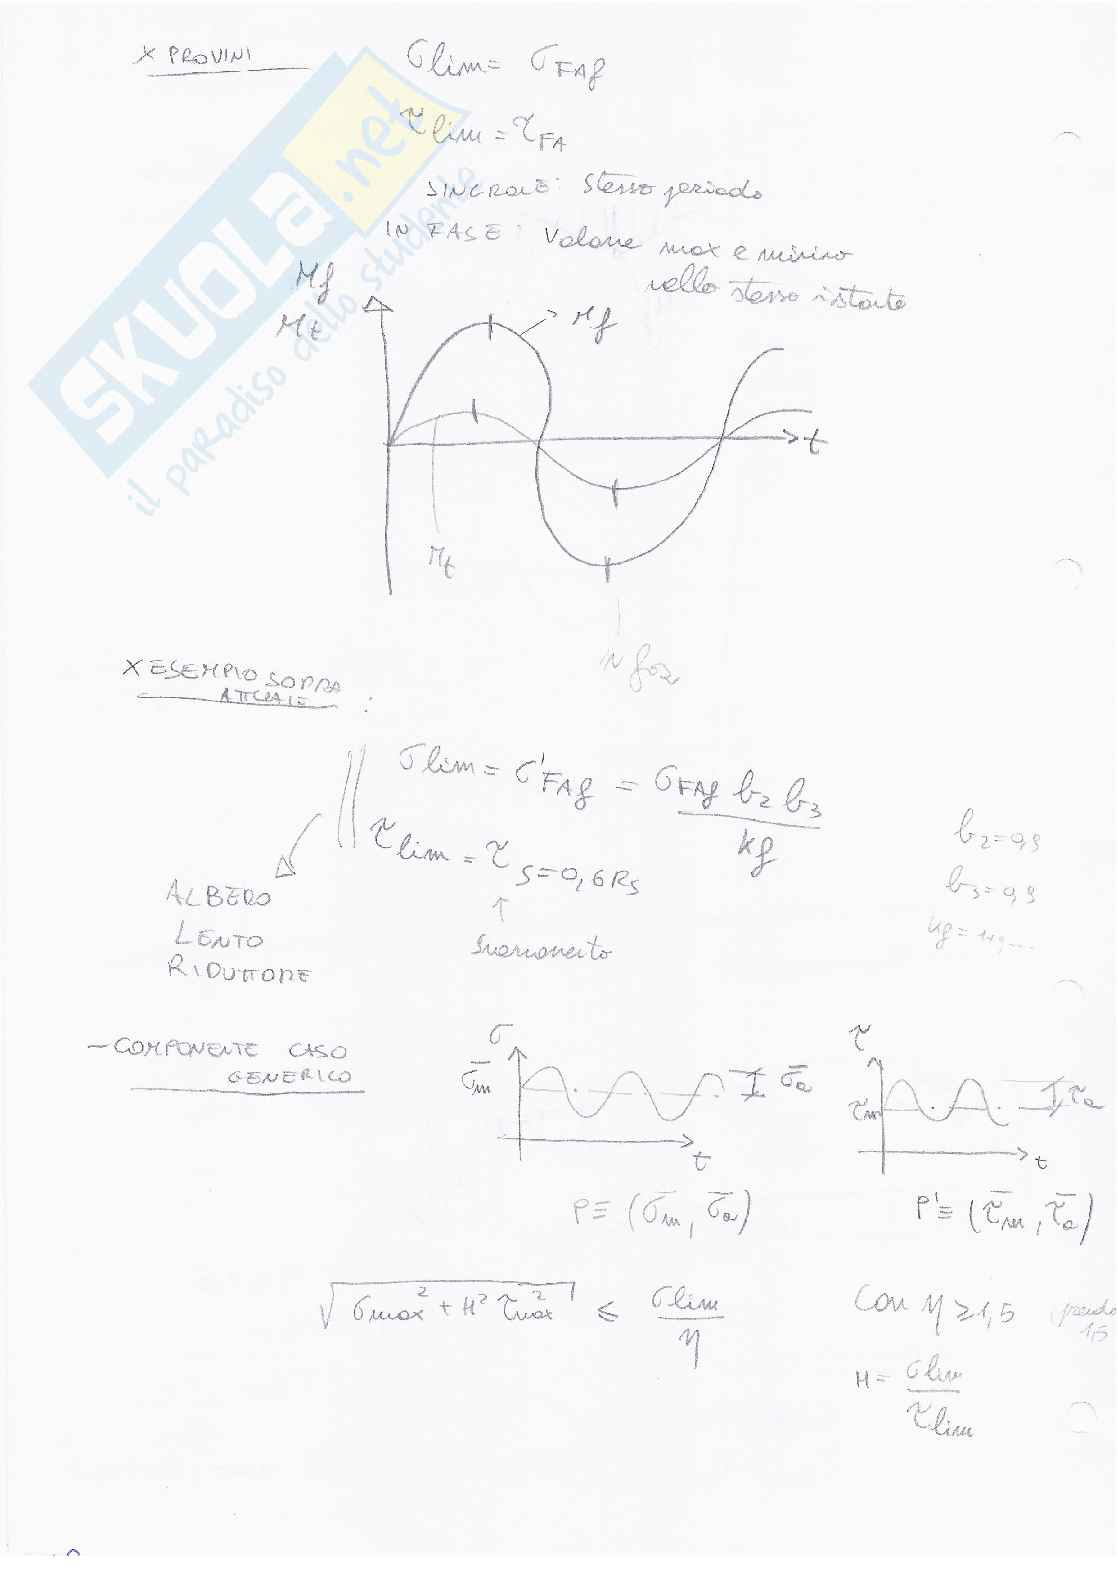 X PROVINI
σlim = σFAf
τlim = τFA
SINCRONE: Stesso periodo
IN FASE: Valore max e minimo
nello stesso istante
Mf
Mt
Mf
t
Mt
X ESEMPIO SOPRA
ATTUALE :
σlim = σ'FAf = σFAf b2 b3 / kf
τlim = τS = 0,6 RS
b2 = 0,9
b3 = 0,9
kf = 1,9....
ALBERO
LENTO
RIDUTTORE
Snervamento
- COMPONENTE CASO
GENERICO
σ
σ̄m
σ̄a
t
τ
τm
τa
t
P ≡ (σ̄m, σ̄a)
P' ≡ (τ̄m, τ̄a)
√(σmax² + H² τmax²) ≤ σlim / η
Con η ≥ 1,5
prendo
1,5
H = σlim / τlim
SKUOLA.net
il paradiso dello studente